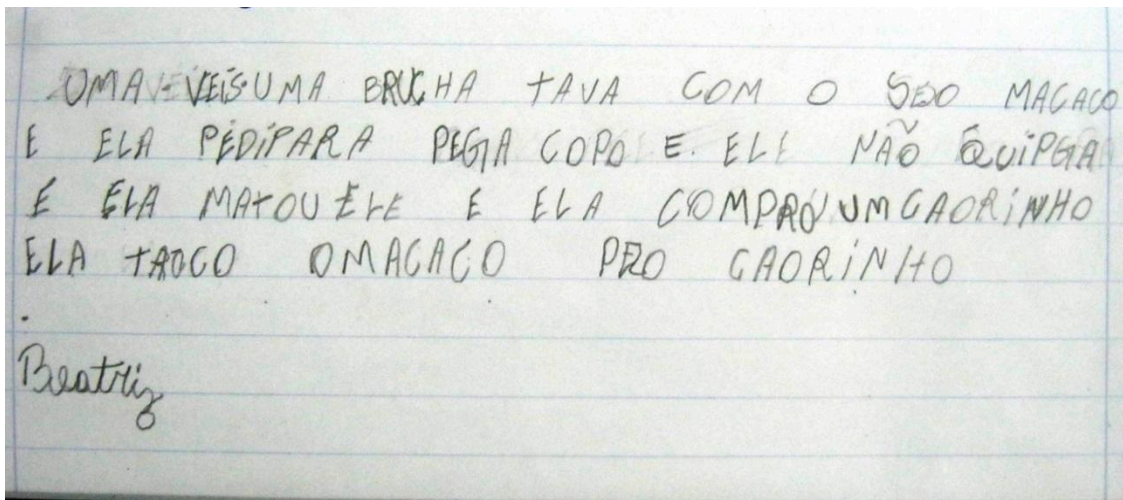 UMA VEISUMA BRUCHA TAVA COM O SEO MACACO
E ELA PEDIPARA PEGA COPO E. ELE NÃO QUIPGA
E ELA MATOU ELE E ELA COMPRO UM CAORINHO
ELA TROCO OMACACO PEO CAORINHO
.
Beatriz